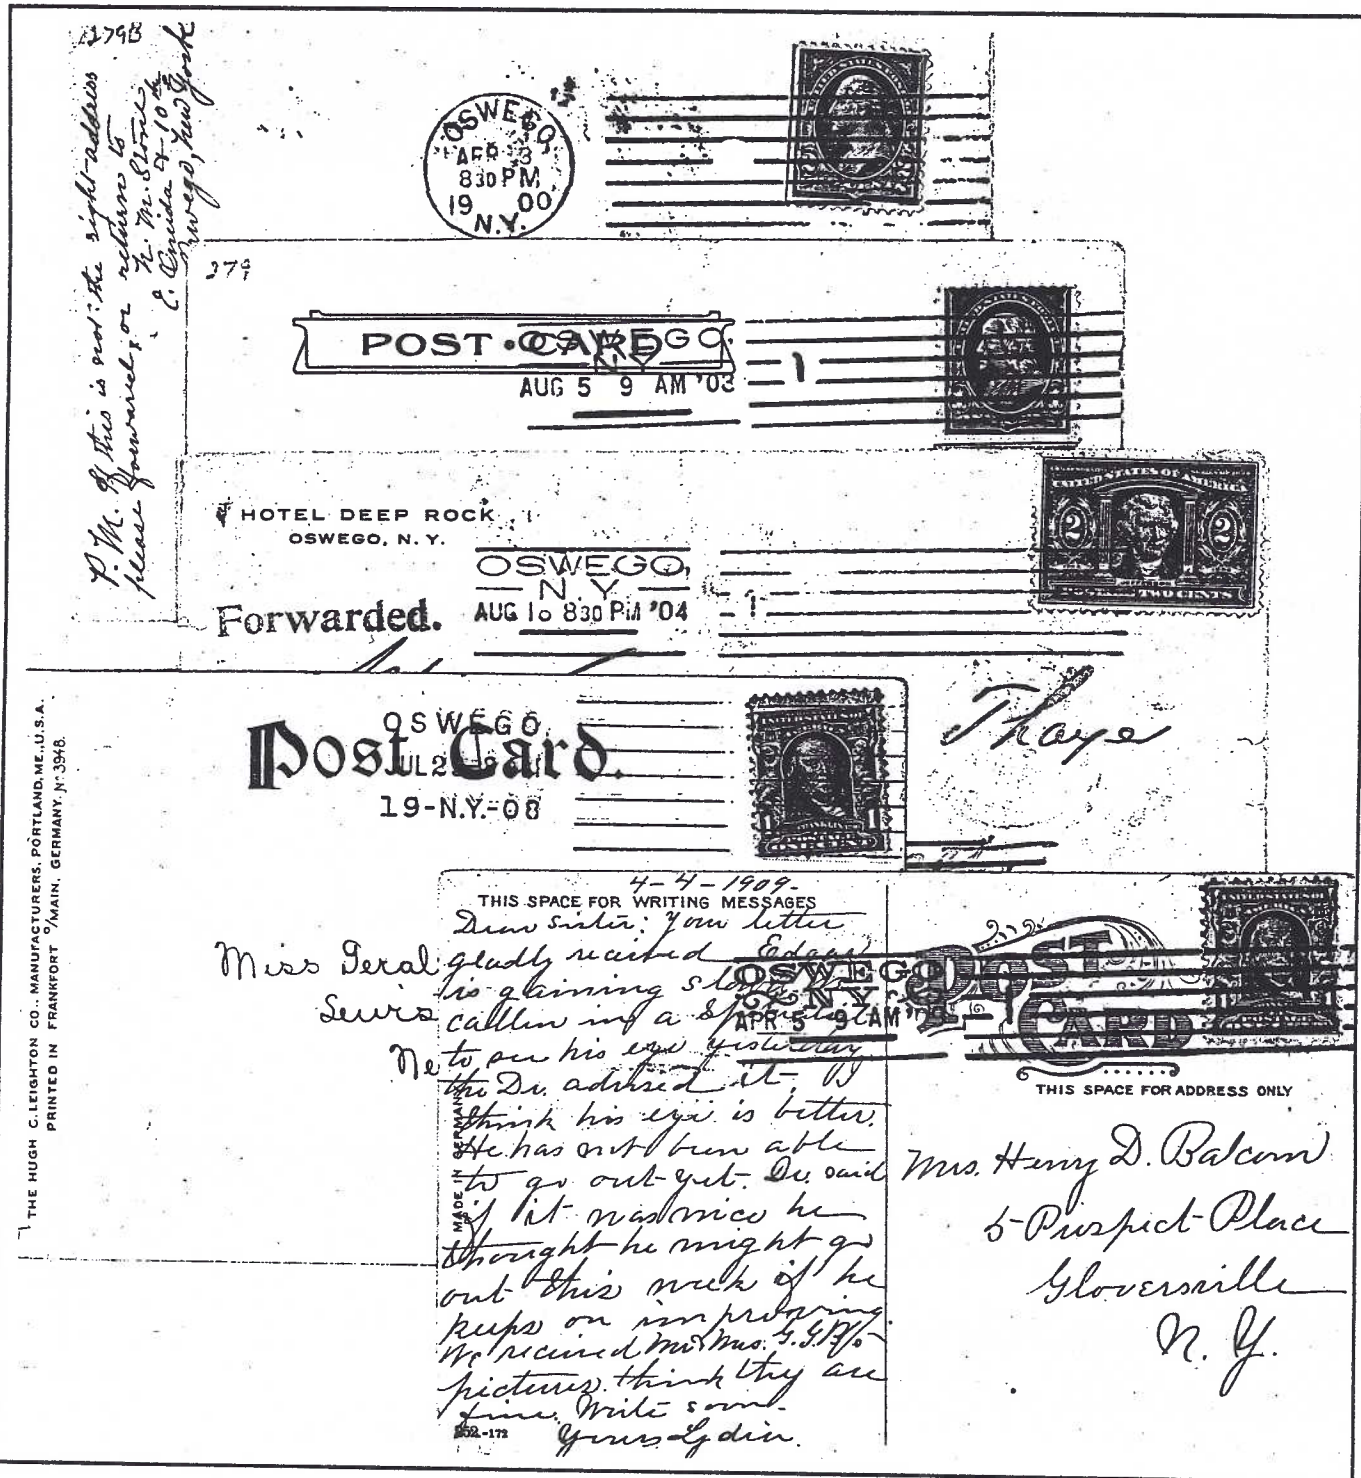 279B
P. M. If this is not the right address
please forward, or return to
N. M. Stone
E. Oneida & 10th
Oswego, New York
OSWEGO
APR 3
830 PM
19 00
N.Y.
279
POST CARD
OSWEGO,
N.Y.
AUG 5 9 AM '03
1
HOTEL DEEP ROCK
OSWEGO, N. Y.
Forwarded.
OSWEGO,
N.Y.
AUG 10 830 PM '04
1
UNITED STATES OF AMERICA
2 2
JEFFERSON
TWO CENTS
Thayer
Post Card.
OSWEGO
JUL 2
19-N.Y.-08
1 1
FRANKLIN
ONE CENT
THE HUGH C. LEIGHTON CO., MANUFACTURERS, PORTLAND, ME., U.S.A.
PRINTED IN FRANKFORT O/MAIN, GERMANY. No 3948.
Miss Geral
Lewis
Ne
4-4-1909-
THIS SPACE FOR WRITING MESSAGES
Dear Sister: Your letter
gladly received Edgar
is gaining slowly
called in a Specialist
to see his eye yesterday
the Dr. advised it. I
think his eye is better.
He has not been able
to go out yet. Dr. said
if it was nice he
thought he might go
out this week if he
keeps on improving.
We received Mr. Mrs. G. G.
pictures. think they are
fine. Write soon.
Yours Lydia.
252-172
MADE IN GERMANY
POST
CARD
OSWEGO
N.Y.
APR 5 9 AM '09
1
THIS SPACE FOR ADDRESS ONLY
Mrs. Henry D. Balcom
5 Prospect Place
Gloversville
N. Y.